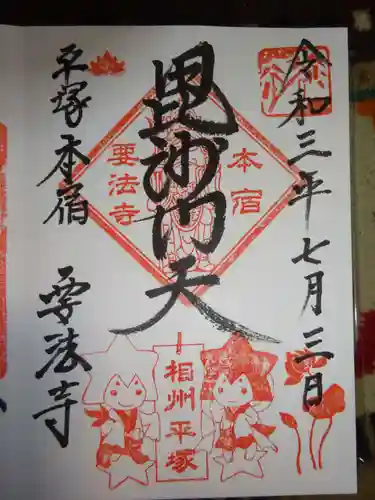 令和三年七月三日
毘沙門天
本宿
要法寺
相州平塚
平塚本宿
要法寺